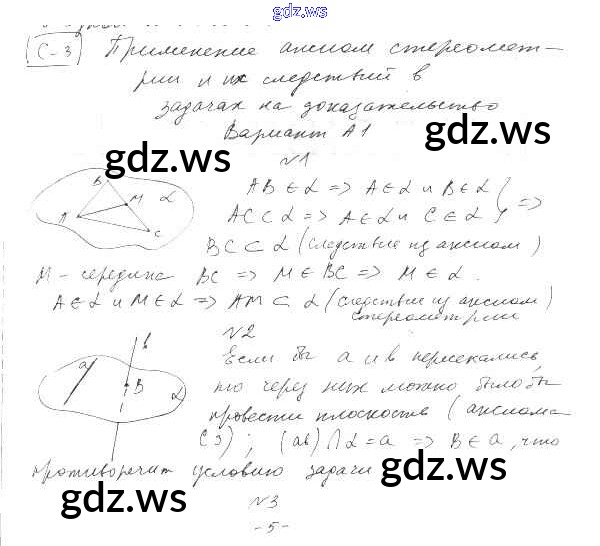 gdz.ws
С-3 Применение аксиом стереомет-
рии и их следствий в
задачах на доказательство
Вариант А1
gdz.ws
gdz.ws
N1
B
M
α
A
C
AB ∈ α => A ∈ α и B ∈ α
AC ⊂ α => A ∈ α и C ∈ α } =>
BC ⊂ α (следствие из аксиом)
M - середина BC => M ∈ BC => M ∈ α.
A ∈ α и M ∈ α => AM ⊂ α (следствие из аксиом)
стереометрии
N2
a
b
B
α
Если бы a и в пересекались,
то через них можно было бы
провести плоскость (аксиома
С3); (ab) ∩ α = a => B ∈ a, что
противоречит условию задачи
gdz.ws
gdz.ws
N3
-5-